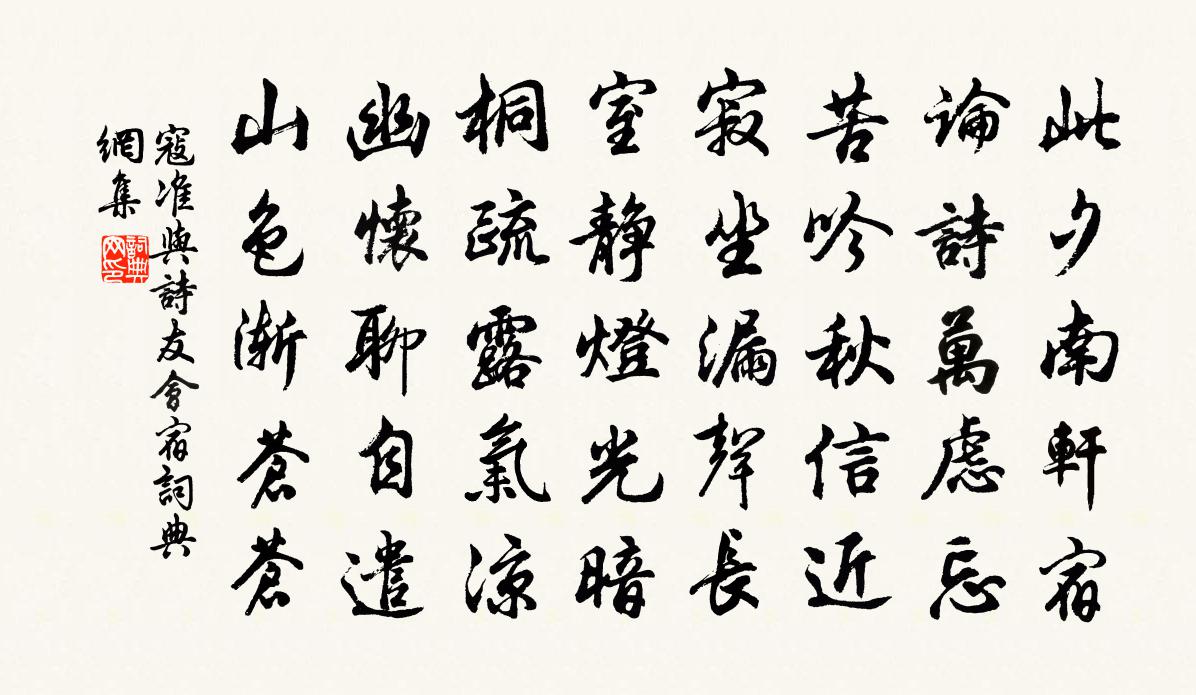 此夕南軒宿
論詩萬慮忘
苦吟秋信近
寂坐漏聲長
室靜燈光暗
桐疏露氣涼
幽懷聊自遣
山色漸蒼蒼
寇准與詩友會宿詞典
網集
詞典网印